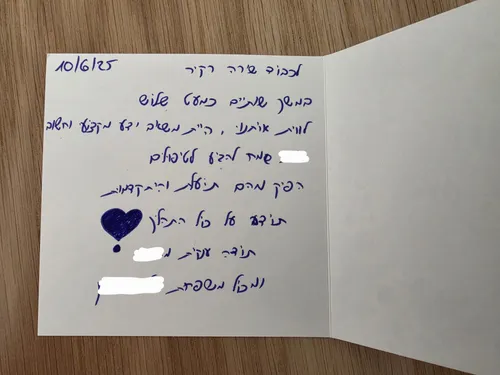 10/6/25
לכבוד שירה רקיר
במשך שנתיים כמעט שלוש
לווית אותנו, היית משאב ידע מקצועי וחשוב
שמח להגיע לטיפולים
הפיק מהם תועלת והתקדמות
תודע על כול התהליך
תודה ענקית מ
ומכול משפחת